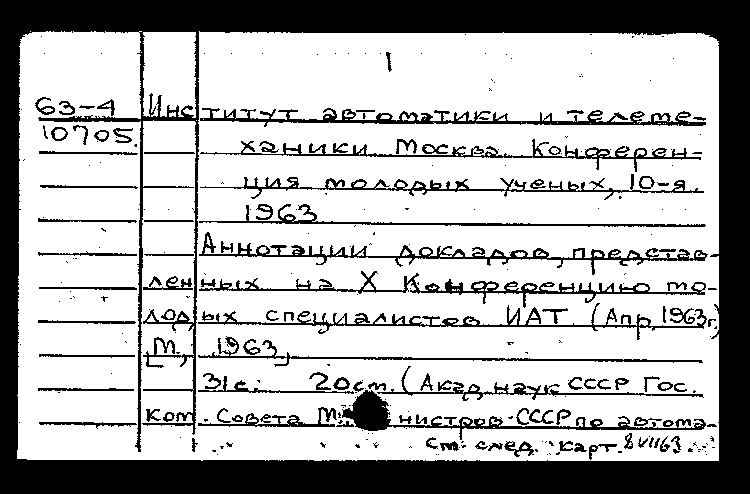 1
63-4 Институт автоматики и телеме-
10705. ханики Москва. Конферен-
ция молодых ученых, 10-я.
1963
Аннотации докладов, представ-
ленных на X Конференцию мо-
лодых специалистов ИАТ (Апр. 1963г.)
[М, 1963]
31с. 20см. (Акад. наук СССР Гос.
ком. Совета Министров СССР по автома-
См. след. карт. 8 VII 63.